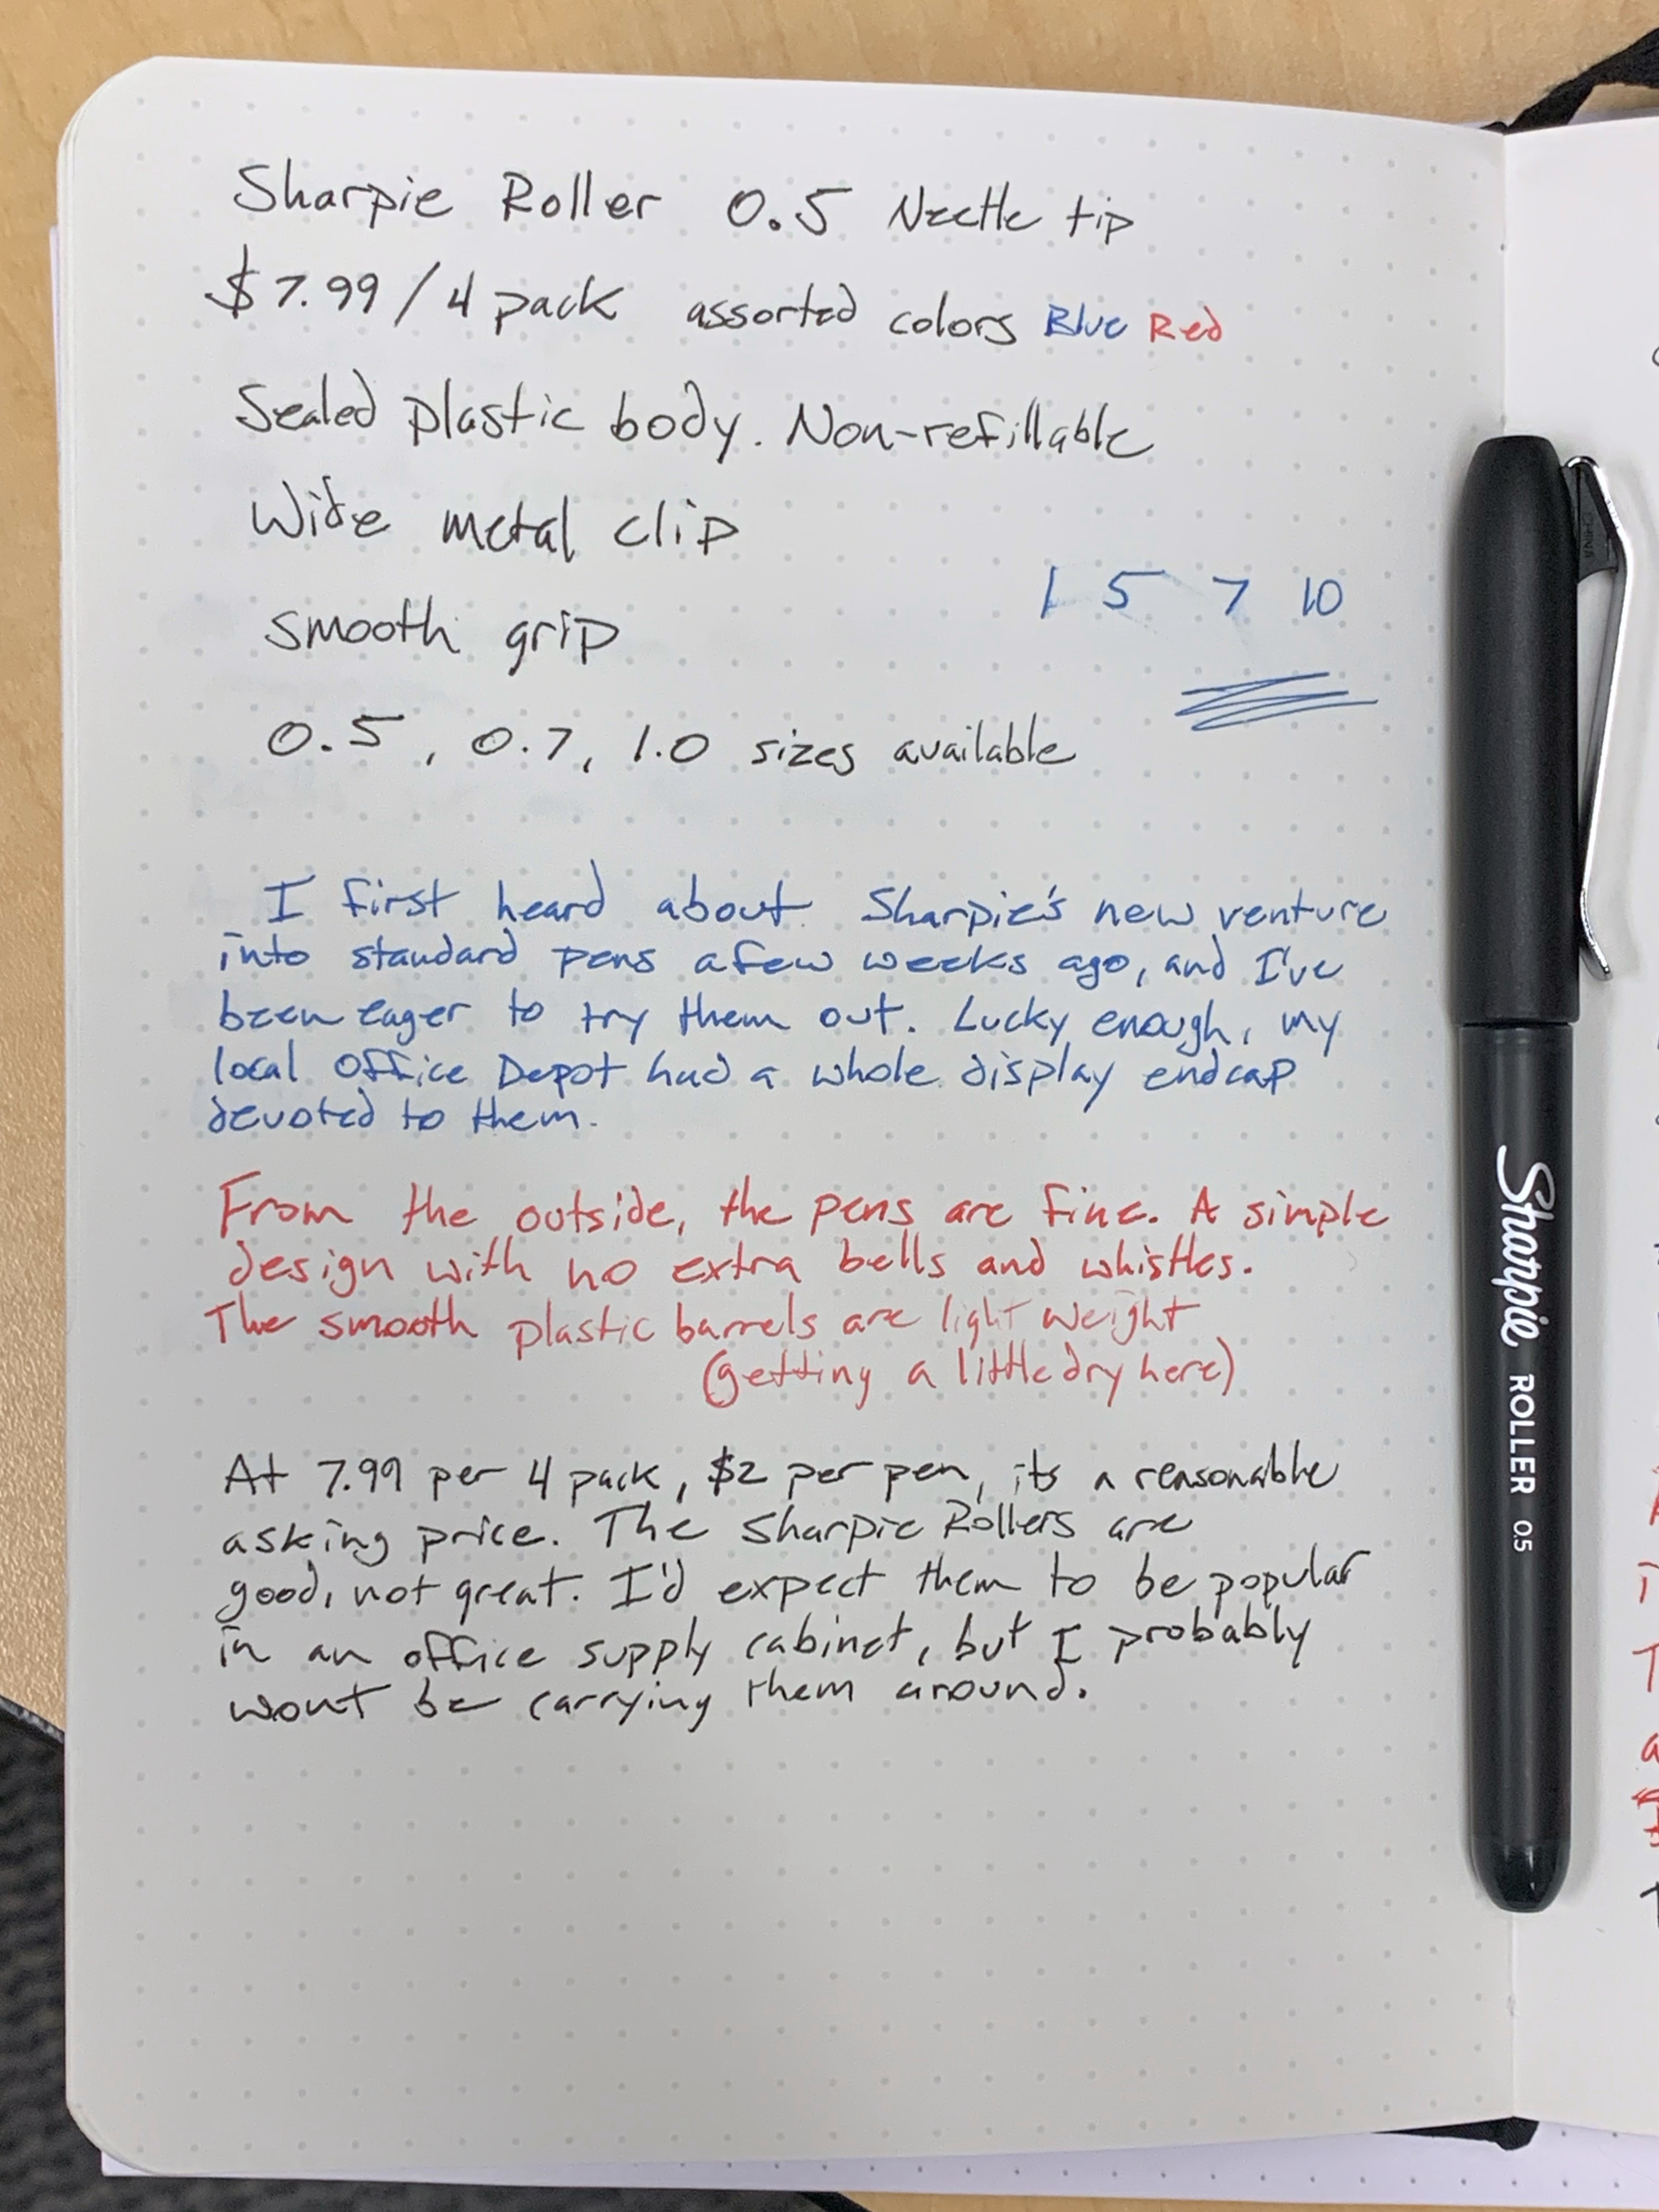 Sharpie Roller 0.5 Needle tip
$7.99/4 pack assorted colors Blue Red
Sealed plastic body. Non-refillable
Wide metal clip
1 5 7 10
smooth grip
0.5, 0.7, 1.0 sizes available
I first heard about Sharpie's new venture
into standard pens a few weeks ago, and I've
been eager to try them out. Lucky enough, my
local Office Depot had a whole display endcap
devoted to them.
From the outside, the pens are fine. A simple
design with no extra bells and whistles.
The smooth plastic barrels are light weight
(getting a little dry here)
At 7.99 per 4 pack, $2 per pen, its a reasonable
asking price. The Sharpie Rollers are
good, not great. I'd expect them to be popular
in an office supply cabinet, but I probably
wont be carrying them around.
Sharpie ROLLER 0.5
CHINA